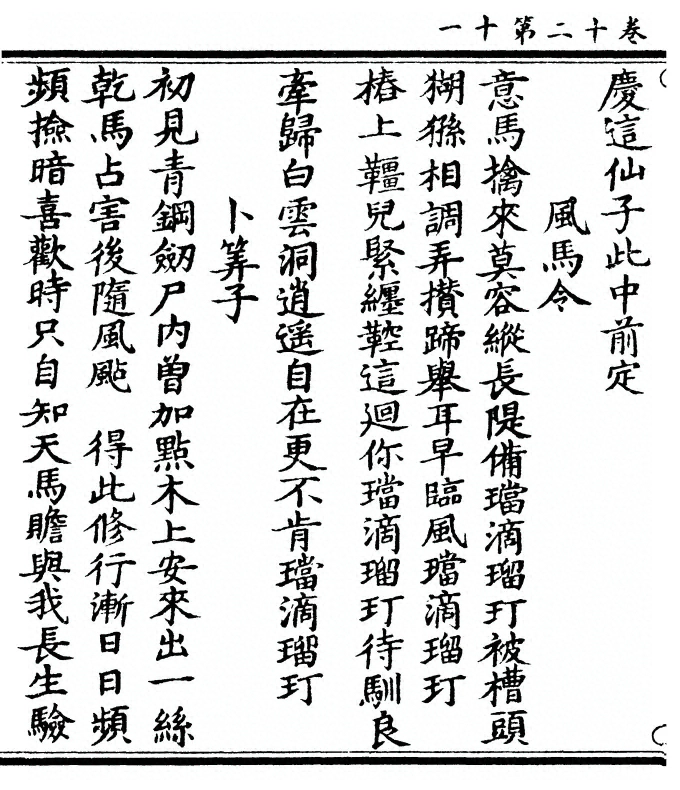 卷十二第十一
慶這仙子此中前定
風馬令
意馬擒來莫容縱長隄備璫滴瑠玎被槽頭
猢猻相調弄攢蹄舉耳早臨風璫滴瑠玎
樁上韁兒緊纏鞚這迴你璫滴瑠玎待馴良
牽歸白雲洞逍遥自在更不肯璫滴瑠玎
卜筭子
初見青鋼劒尸内曾加點木上安來出一絲
乾馬占害後隨風颭　得此修行漸日日頻
頻撿暗喜歡時只自知天馬贍與我長生驗